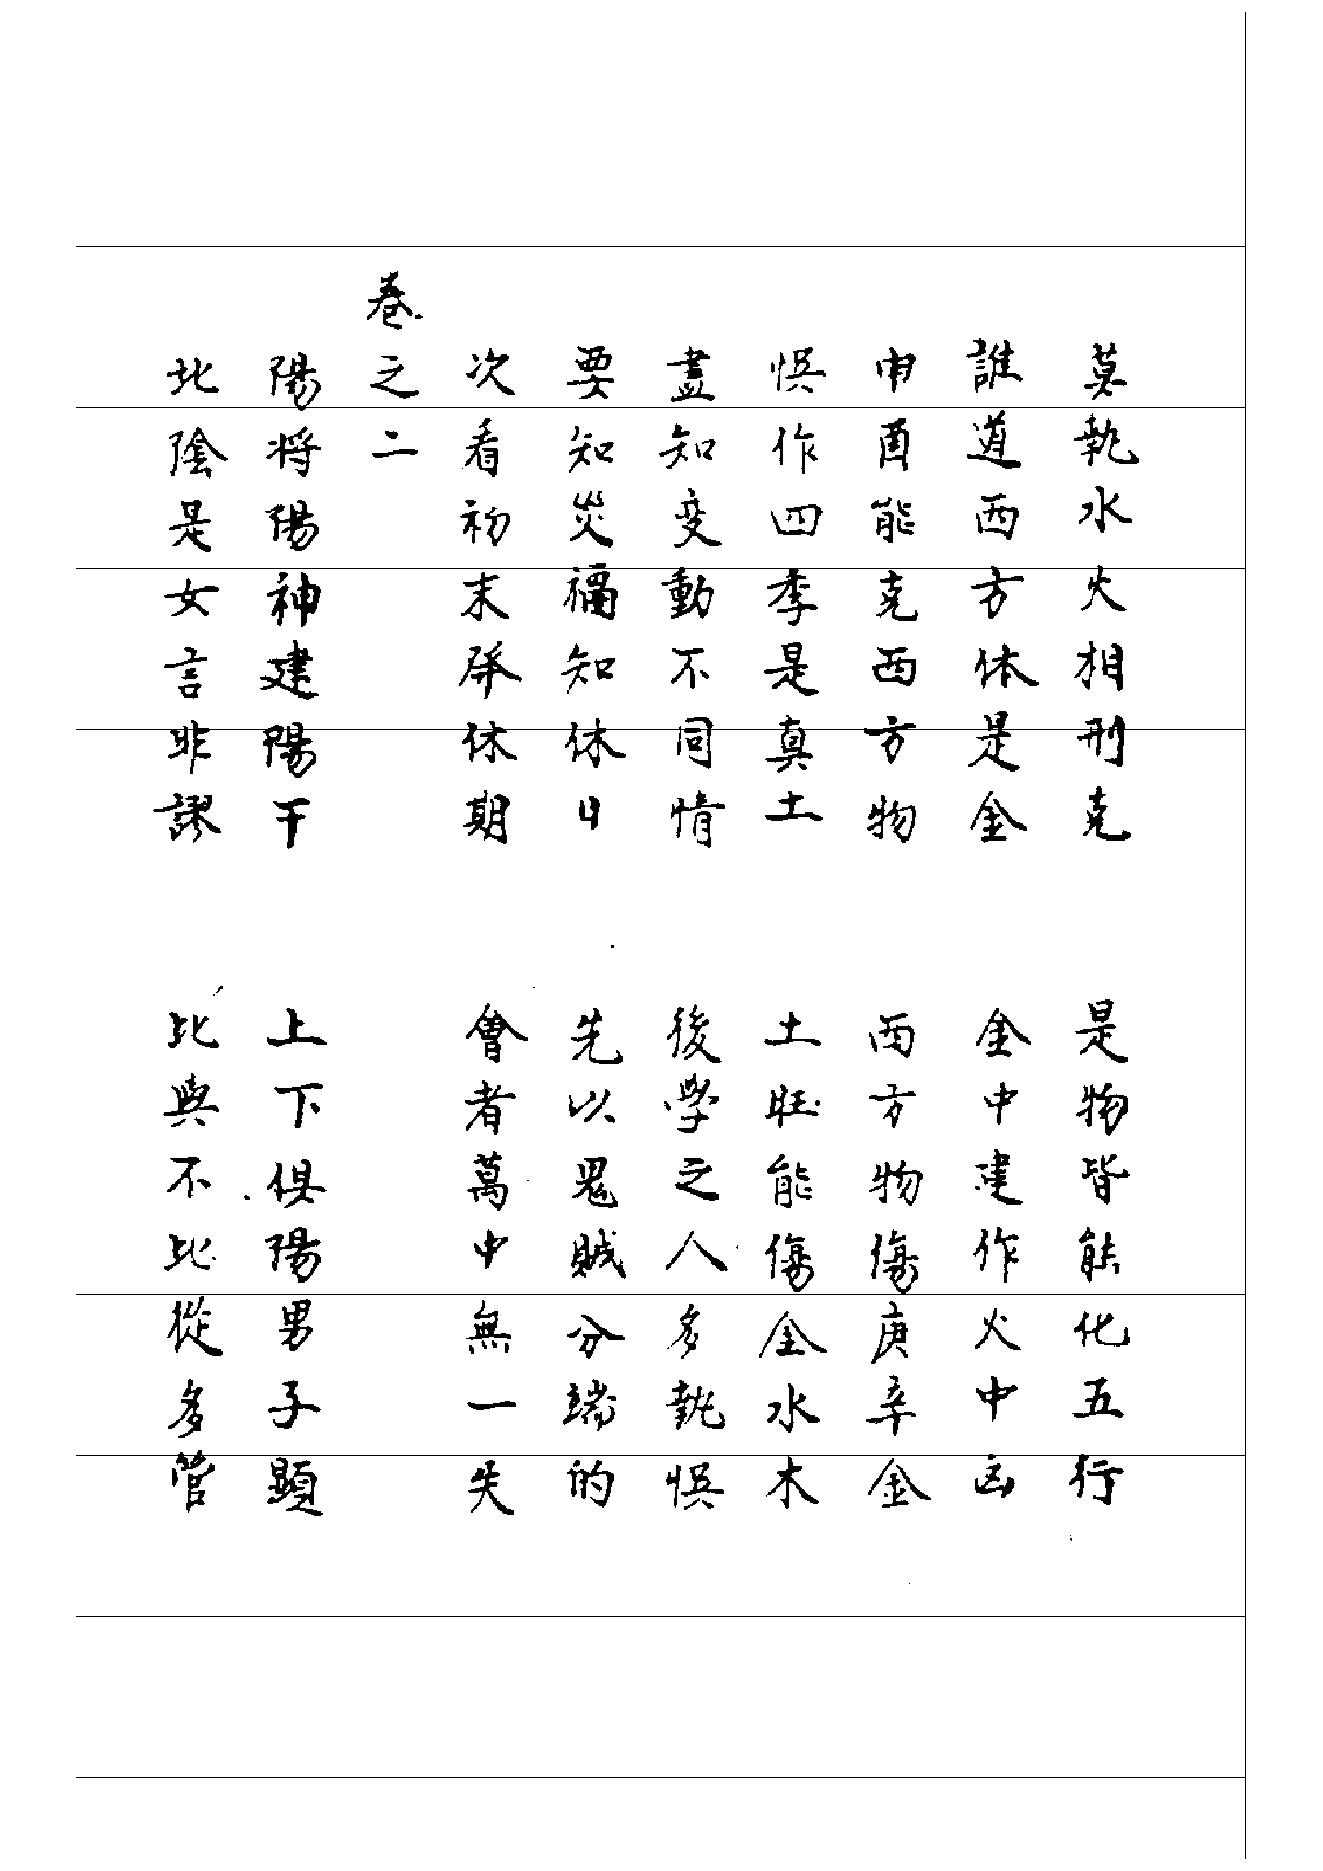 莫執水火相刑克　是物皆能化五行
誰道西方休是金　金中建作火中凶
申酉能克西方物　西方物傷庚辛金
悞作四季是真土　土旺能傷金水木
盡知变動不同情　後學之人多執悞
要知災福知休日　先以鬼賊分端的
次看初末併休期　會者萬中無一失
卷之二
陽將陽神建陽干　上下俱陽男子顯
北陰是女言非謬　比與不比從多管